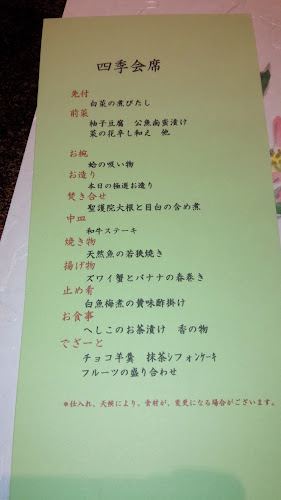 四季会席
先付
白菜の煮びたし
前菜
柚子豆腐 公魚南蛮漬け
菜の花辛し和え 他
お椀
蛤の吸い物
お造り
本日の極選お造り
焚き合せ
聖護院大根と目白の含め煮
中皿
和牛ステーキ
焼き物
天然魚の若狭焼き
揚げ物
ズワイ蟹とバナナの春巻き
止め肴
白魚梅煮の黄味酢掛け
お食事
へしこのお茶漬け 香の物
でざーと
チョコ羊羹 抹茶シフォンケーキ
フルーツの盛り合わせ
*仕入れ、天候により、食材が、変更になる場合がございます。